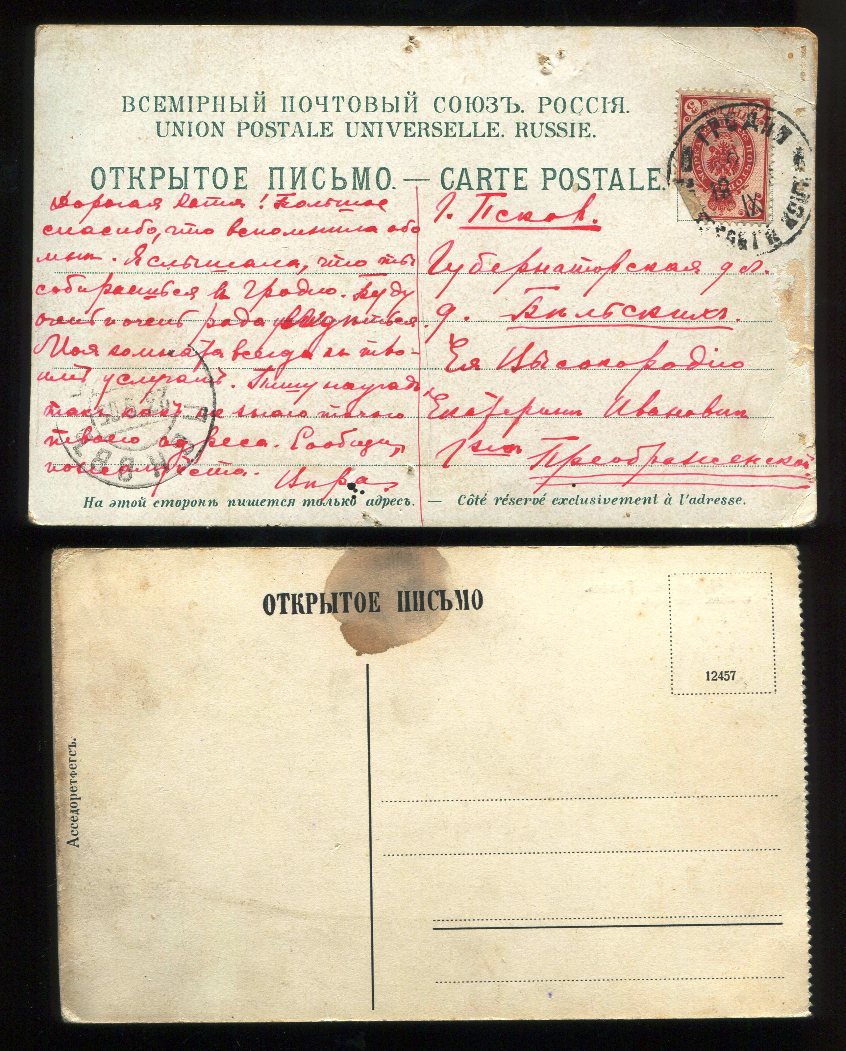 ВСЕМІРНЫЙ ПОЧТОВЫЙ СОЮЗЪ. РОССІЯ.
UNION POSTALE UNIVERSELLE. RUSSIE.
ОТКРЫТОЕ ПИСЬМО. — CARTE POSTALE.
Дорогая Катя! Большое
спасибо, что вспомнила обо
мнѣ. Я слышала, что ты
собираешься в Гродно. Буду
очень и очень рада увидѣться
Моя комната всегда къ тво-
имъ услугамъ. Пишу
такъ какъ не было
твоего адреса. Сообщи,
пожалуйста.
г. Псков.
Губернаторская ул.
д. Бѣльскихъ.
Ея Высокородію
Екатеринѣ Ивановнѣ
Г-жѣ Преображенской
На этой сторонѣ пишется только адресъ. — Côté réservé exclusivement à l'adresse.
ГРОДНО
ПСКОВЪ
ОТКРЫТОЕ ПИСЬМО
12457
Асседоретфегсъ.